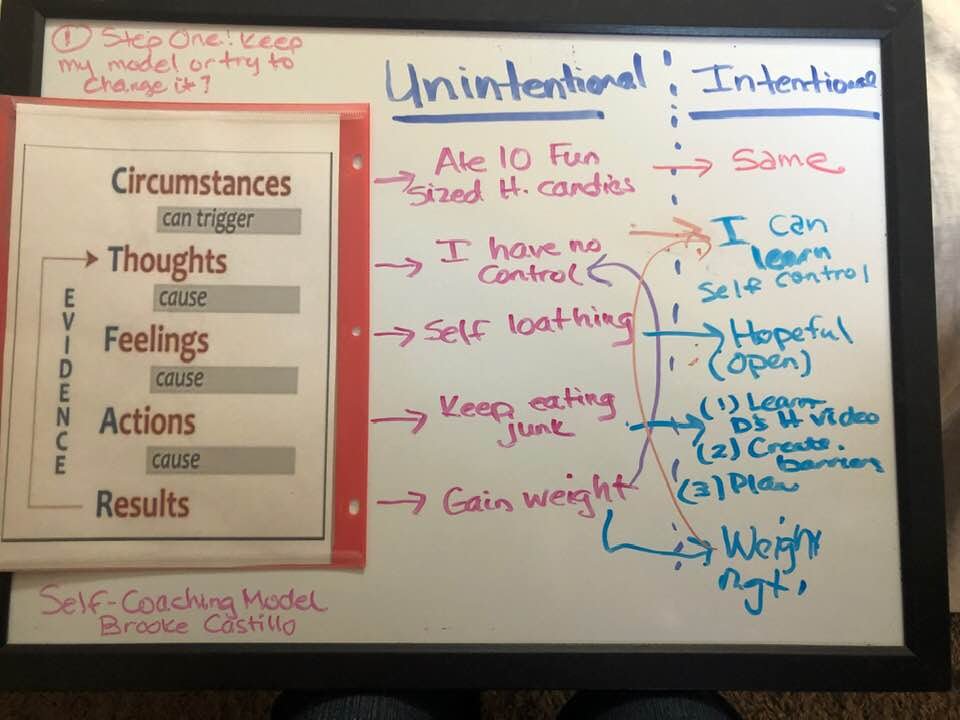 ① Step One! Keep
my model or try to
change it?
Unintentional
Intentional
Circumstances
can trigger
Thoughts
cause
Feelings
cause
Actions
cause
Results
EVIDENCE
Ate 10 Fun
Sized H. candies
Same
I have no
control
I can
learn
self control
Self loathing
Hopeful
(open)
Keep eating
junk
(1) Learn
H Video
(2) Create
barriers
(3) Plan
Gain weight
Weight
mgt.
Self-Coaching Model
Brooke Castillo